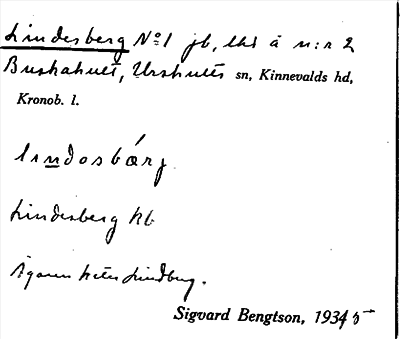 Lindesberg No 1 jb, lht å n:r 2
Buskahult, Urshults sn, Kinnevalds hd,
Kronob. l.
lındosbærj
Lindesberg kb
Ägaren heter Lindberg.
Sigvard Bengtson, 1934 5